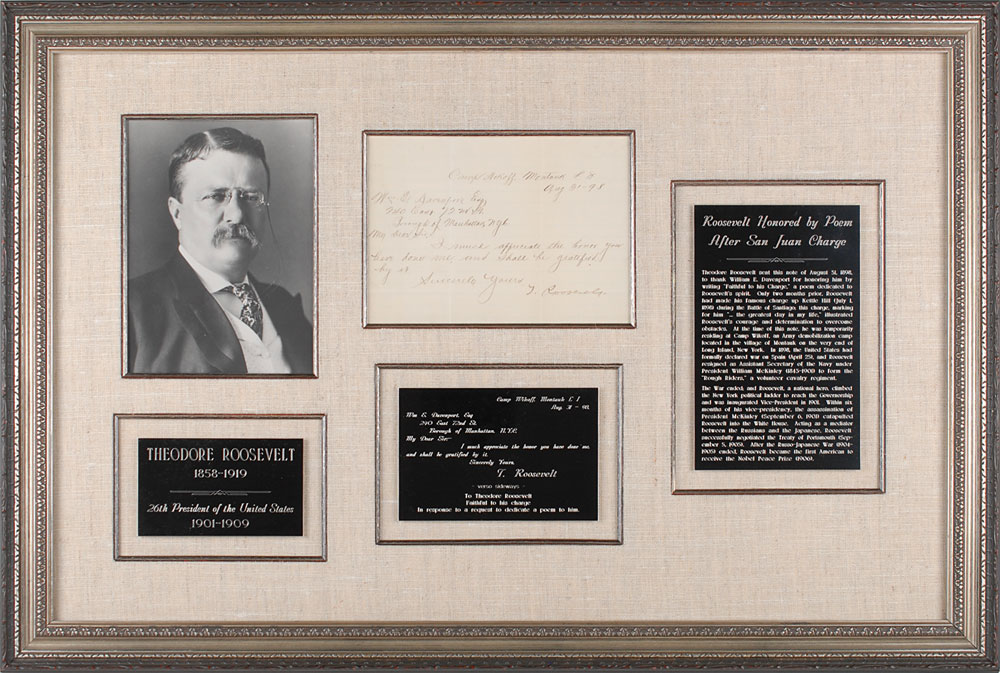 Camp Wikoff, Montauk L I
Aug 31-98
Wm E Davenport Esq,
Borough of Manhattan, NYC
My Dear Sir:
I much appreciate the honor you
have done me, and shall be gratified
by it
Sincerely Yours
T. Roosevelt
THEODORE ROOSEVELT
1858-1919
26th President of the United States
1901-1909
Camp Wikoff, Montauk L I
Aug. 31 - 98.
Wm E. Davenport, Esq
240 East 72nd St.
Borough of Manhattan, N.Y.C.
My Dear Sir:-
I much appreciate the honor you have done me,
and shall be gratified by it.
Sincerely Yours,
T. Roosevelt
- verso sideways -
To Theodore Roosevelt
Faithful to his charge
In response to a request to dedicate a poem to him.
Roosevelt Honored by Poem
After San Juan Charge
Theodore Roosevelt sent this note of August 31, 1898,
to thank William E. Davenport for honoring him by
writing "Faithful to his Charge," a poem dedicated to
Roosevelt's spirit. Only two months prior, Roosevelt
had made his famous charge up Kettle Hill (July 1,
1898) during the Battle of Santiago; this charge, marking
for him "... the greatest day in my life," illustrated
Roosevelt's courage and determination to overcome
obstacles. At the time of this note, he was temporarily
residing at Camp Wikoff, an Army demobilization camp
located in the village of Montauk on the very end of
Long Island, New York. In 1898, the United States had
formally declared war on Spain (April 25), and Roosevelt
resigned as Assistant Secretary of the Navy under
President William McKinley (1843-1901) to form the
"Rough Riders," a volunteer cavalry regiment.
The War ended, and Roosevelt, a national hero, climbed
the New York political ladder to reach the Governorship
and was inaugurated Vice-President in 1901. Within six
months of his vice-presidency, the assassination of
President McKinley (September 6, 1901) catapulted
Roosevelt into the White House. Acting as a mediator
between the Russians and the Japanese, Roosevelt
successfully negotiated the Treaty of Portsmouth (Sep-
tember 5, 1905). After the Russo-Japanese War (1904-
1905) ended, Roosevelt became the first American to
receive the Nobel Peace Prize (1906).